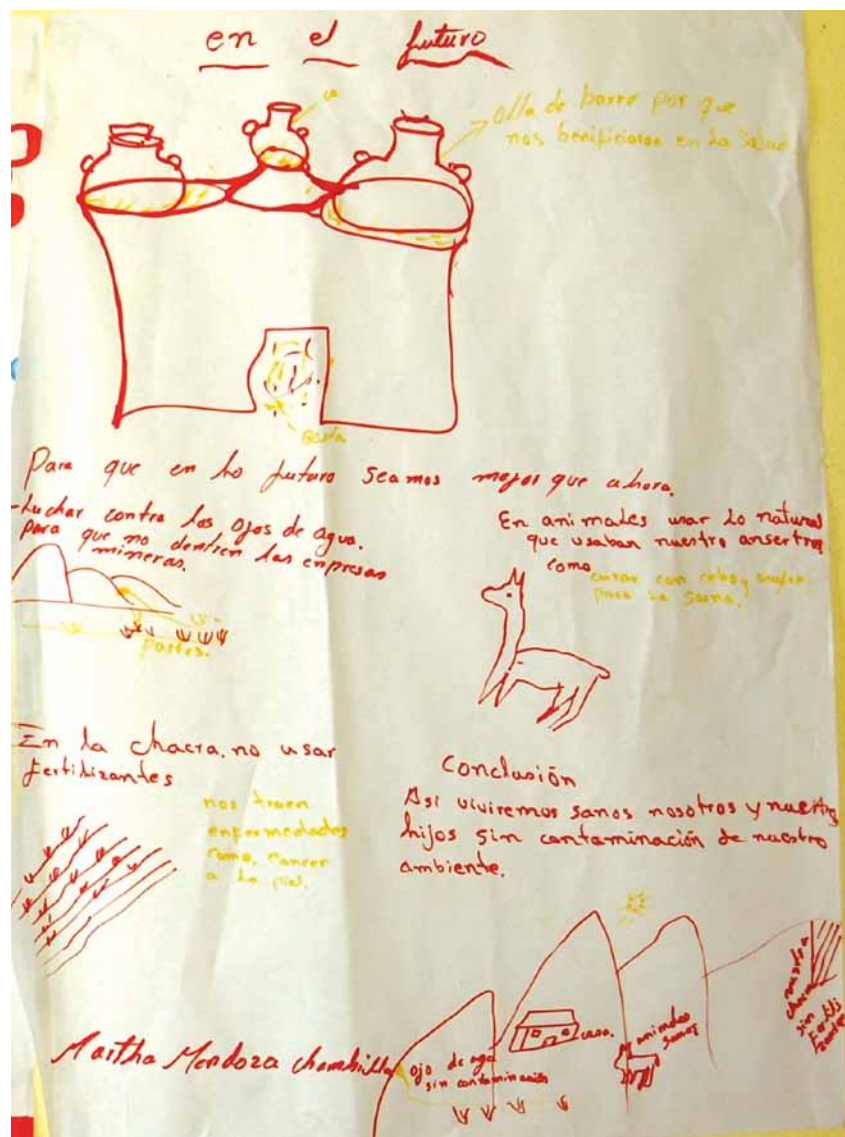 en el futuro
Olla de barro por que
nos beeificiaran en la Salud
Bosta
Para que en lo futuro seamos mejor que ahora.
-Luchar contra los ojos de agua.
para que no dentren las enpresas
mineras.
pastos.
En animales usar lo natural
que usaban nuestro ansertros
como
curar con cebo y
para la Sarna.
En la chacra. no usar
fertilizantes
nos traen
enfermedades
como. cancer
a la piel.
Conclusión
Asi viviremos sanos nosotros y nuestros
hijos sin contaminación de nuestro
ambiente.
Martha Mendoza Chambilla
ojo de agua
sin contaminación
casa.
animales
sanos
nuestra
chacra
sin
Fertili
zantes